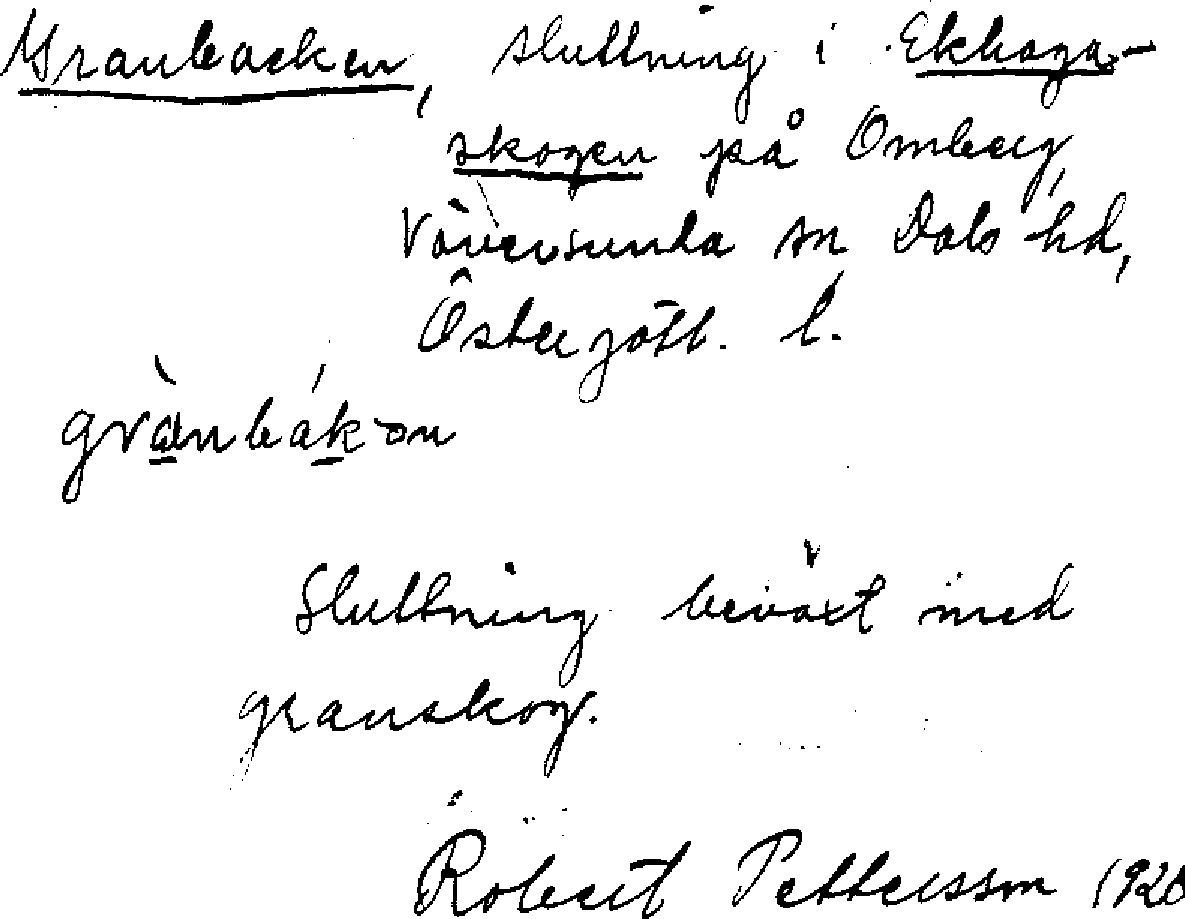 Granbacken, sluttning i Ekhaga-
skogen på Omberg,
Väversunda sn Dals hd,
Östergötl. l.
Sluttning beväxt med
granskog.
Robert Pettersson